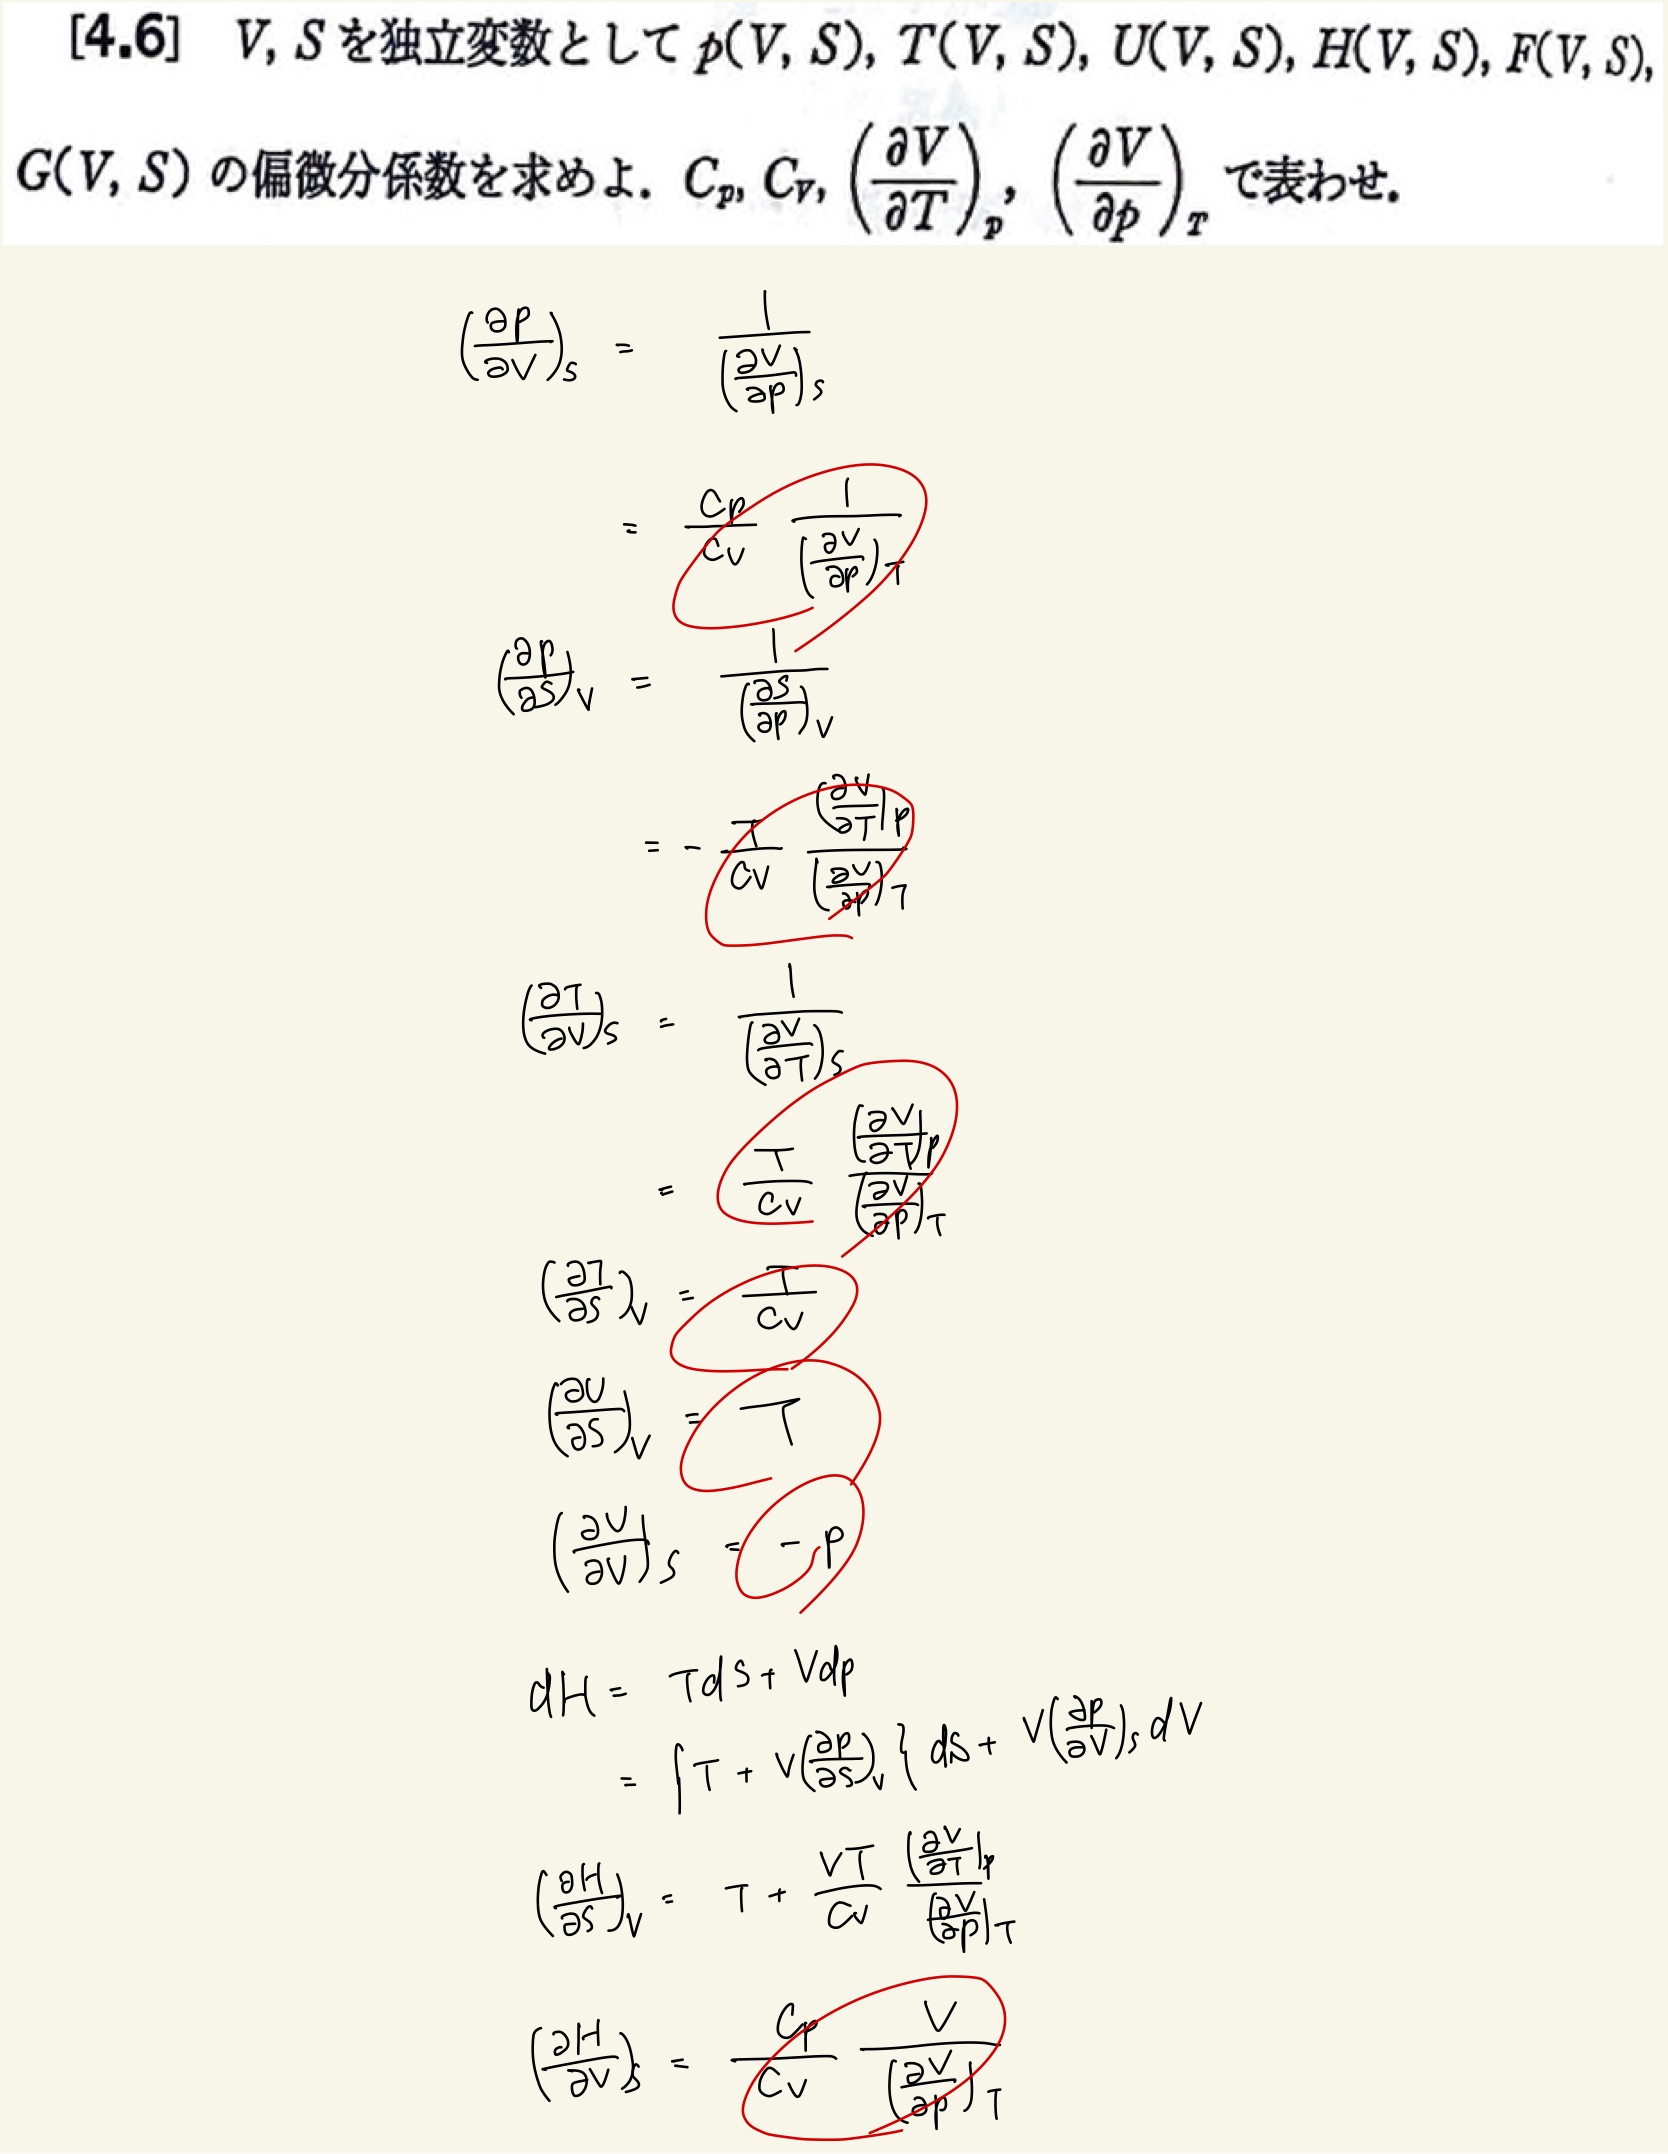 [4.6] V, S を独立変数として p(V, S), T(V, S), U(V, S), H(V, S), F(V, S),
G(V, S) の偏微分係数を求めよ. C_p, C_V, (∂V/∂T)_p, (∂V/∂p)_T で表わせ.
(∂p/∂V)_S = 1/(∂V/∂p)_S
= Cp/Cv 1/(∂V/∂p)_T
(∂p/∂S)_V = 1/(∂S/∂p)_V
= - T/Cv (∂V/∂T)_p/(∂V/∂p)_T
(∂T/∂V)_S = 1/(∂V/∂T)_S
= T/Cv (∂V/∂T)_p/(∂V/∂p)_T
(∂T/∂S)_V = T/Cv
(∂U/∂S)_V = T
(∂U/∂V)_S = - p
dH = TdS + Vdp
= {T + V(∂p/∂S)_V} dS + V(∂p/∂V)_S dV
(∂H/∂S)_V = T + VT/Cv (∂V/∂T)_p/(∂V/∂p)_T
(∂H/∂V)_S = Cp/Cv V/(∂V/∂p)_T